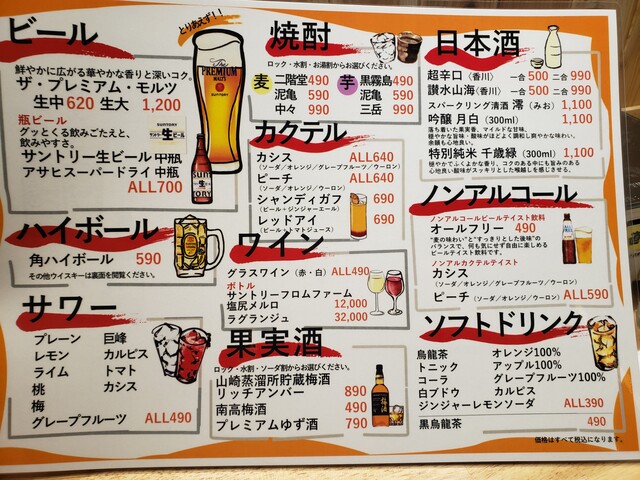 ビール
とりあえず!!
鮮やかに広がる華やかな香りと深いコク。
ザ・プレミアム・モルツ
生中620 生大 1,200
The PREMIUM MALT'S
SUNTORY
瓶ビール
グッとくる飲みごたえと、
飲みやすさ。
サントリー生ビール 中瓶
アサヒスーパードライ 中瓶
ALL700
ハイボール
角ハイボール 590
その他ウイスキーは裏面を閲覧ください。
サワー
プレーン 巨峰
レモン カルピス
ライム トマト
桃 カシス
梅
グレープフルーツ ALL490
焼酎
ロック・水割・お湯割からお選びください。
麦 二階堂 490
泥亀 590
中々 990
芋 黒霧島 490
泥亀 590
三岳 990
カクテル
カシス ALL640
(ソーダ/オレンジ/グレープフルーツ/ウーロン)
ピーチ ALL640
(ソーダ/オレンジ/ウーロン)
シャンディガフ 690
(ビール+ジンジャーエール)
レッドアイ 690
(ビール+トマトジュース)
ワイン
グラスワイン(赤・白)ALL490
ボトル
サントリーフロムファーム
塩尻メルロ 12,000
ラグランジュ 32,000
果実酒
ロック・水割・ソーダ割からお選びください。
山崎蒸溜所貯蔵梅酒
リッチアンバー 890
南高梅酒 490
プレミアムゆず酒 790
日本酒
超辛口(香川) 一合500 二合990
讃水山海(香川) 一合500 二合990
スパークリング清酒 澪(みお) 1,100
吟醸 月白(300ml) 1,100
落ち着いた果実香、マイルドな甘味。
穏やかな旨味・酸味がほどよく調和し爽やかな味わい。
余韻も心地良い。
特別純米 千歳緑(300ml) 1,100
穏やかでふくよかな香り、コクのある中にも旨みのある
心地良い酸味がスッキリとした喉越しを感じさせる。
ノンアルコール
ノンアルコールビールテイスト飲料
オールフリー 490
"麦の味わい"と"すっきりとした後味"の
バランスで、何も気にせず自由に楽しめる
ビールテイスト飲料です。
ノンアルカクテルテイスト
カシス
(ソーダ/オレンジ/グレープフルーツ/ウーロン)
ピーチ(ソーダ/オレンジ/ウーロン) ALL590
ソフトドリンク
烏龍茶 オレンジ100%
トニック アップル100%
コーラ グレープフルーツ100%
白ブドウ カルピス
ジンジャーレモンソーダ ALL390
黒烏龍茶 490
価格はすべて税込になります。